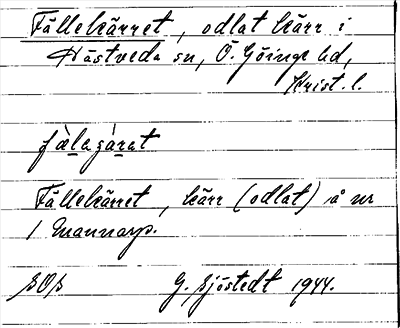 Fällekärret, odlat kärr i
Hästveda sn, Ö. Göinge hd,
Krist. l.
fæ̀lagàrat
Fällekärret, kärr (odlat) å nr
1 Mannarp.
SOS G. Sjöstedt 1944.